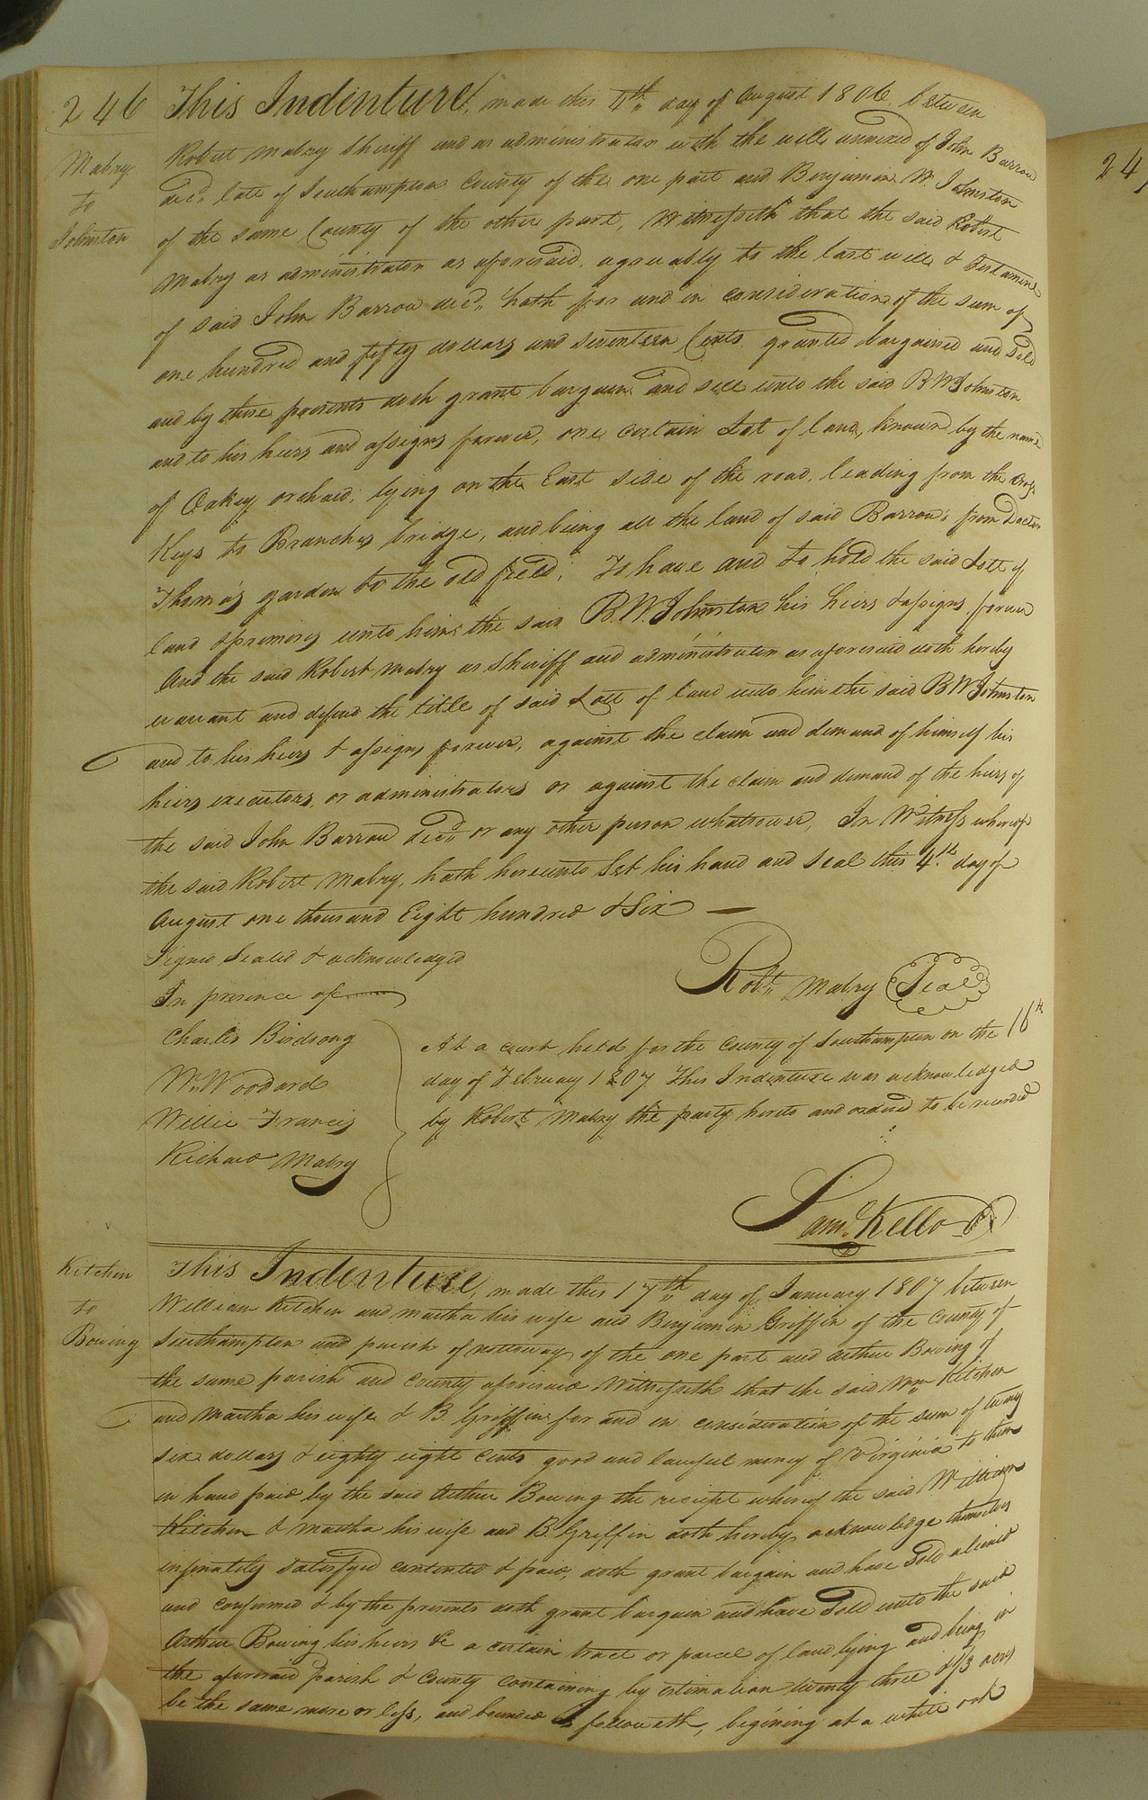 246
This Indenture, made this 4th day of August 1806 between
Mabry
to
Johnston
Robert Mabry Sheriff and as administrator with the will annexed of John Barrow
decd. late of Southampton County of the one part and Benjamin W. Johnston
of the same County of the other part, Witnesseth that the said Robert
Mabry as administrator as aforesaid, agreeably to the last will & Testament
of said John Barrow decd. hath for and in consideration of the sum of
one hundred and fifty dollars and seventeen Cents granted bargained and sold
and by these presents doth grant bargain and sell unto the said B W Johnston
and to his heirs and assigns forever, one certain Lot of land, known by the name
of Oakey orchard, lying on the East side of the road, leading from the Cross
Keys to Branches bridge, and being all the land of said Barrow's from Doctor
Thomas's garden to the old field; To have and to hold the said Lott of
land & premises unto him the said B. W. Johnston his heirs & assigns forever
And the said Robert Mabry as Sheriff and administrator as aforesaid doth hereby
warrant and defend the title of said Lott of land unto him the said B W Johnston
and to his heirs & assigns forever, against the claim and demand of himself his
heirs executors, or administrators or against the claim and demand of the heirs of
the said John Barrow decd. or any other person whatsoever, In Witness whereof
the said Robert Mabry, hath hereunto Set his hand and Seal this 4th day of
August one thousand Eight hundred & Six
Signed Sealed & acknowledged
In presence of
Robt. Mabry Seal
Charles Birdsong
Wm. Woodard
Willie Francis
Richard Mabry
At a court held for the County of Southampton on the 16th
day of February 1807 This Indenture was acknowledged
by Robert Mabry the party hereto and ordered to be recorded
Saml. Kello
Kitchen
to
Bowing
This Indenture, made this 17th day of January 1807 between
William Kitchen and Martha his wife and Benjamin Griffin of the County of
Southampton and parish of nottoway of the one part and Arthur Bowing of
the same parish and County aforesaid Witnesseth that the said Wm Kitchen
and Martha his wife & B. Griffin for and in consideration of the sum of twenty
six dollars & eighty eight cents good and lawful money of Virginia to them
in hand paid by the said Arthur Bowing the reciept whereof the said William
Kitchen & Martha his wife and B Griffin doth hereby acknowledge themselves
infinately satisfyed contented & paid, doth grant bargain and have Sold aliened
and confirmed & by the presents doth grant bargain and have Sold unto the said
Arthur Bowing his heirs &c a certain tract or parcel of land lying and being in
the aforesaid parish & County containing by estimation twenty three & 1/3 acres
be the same more or less, and bounded as followeth, begining at a white oak